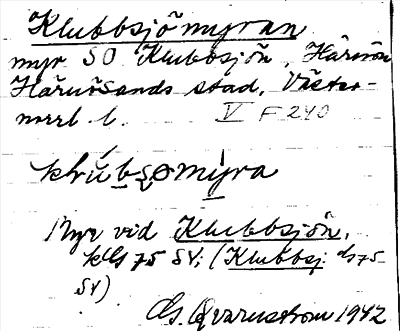 Klubbsjömyran
myr SO Klubbsjön, Härnön
Härnösands stad, Väster-
norrl. l. V F 240
klúbsømỳra
Myr vid Klubbsjön,
75 SV; (Klubbsj. 75
SV)
G. Qvarnström 1942